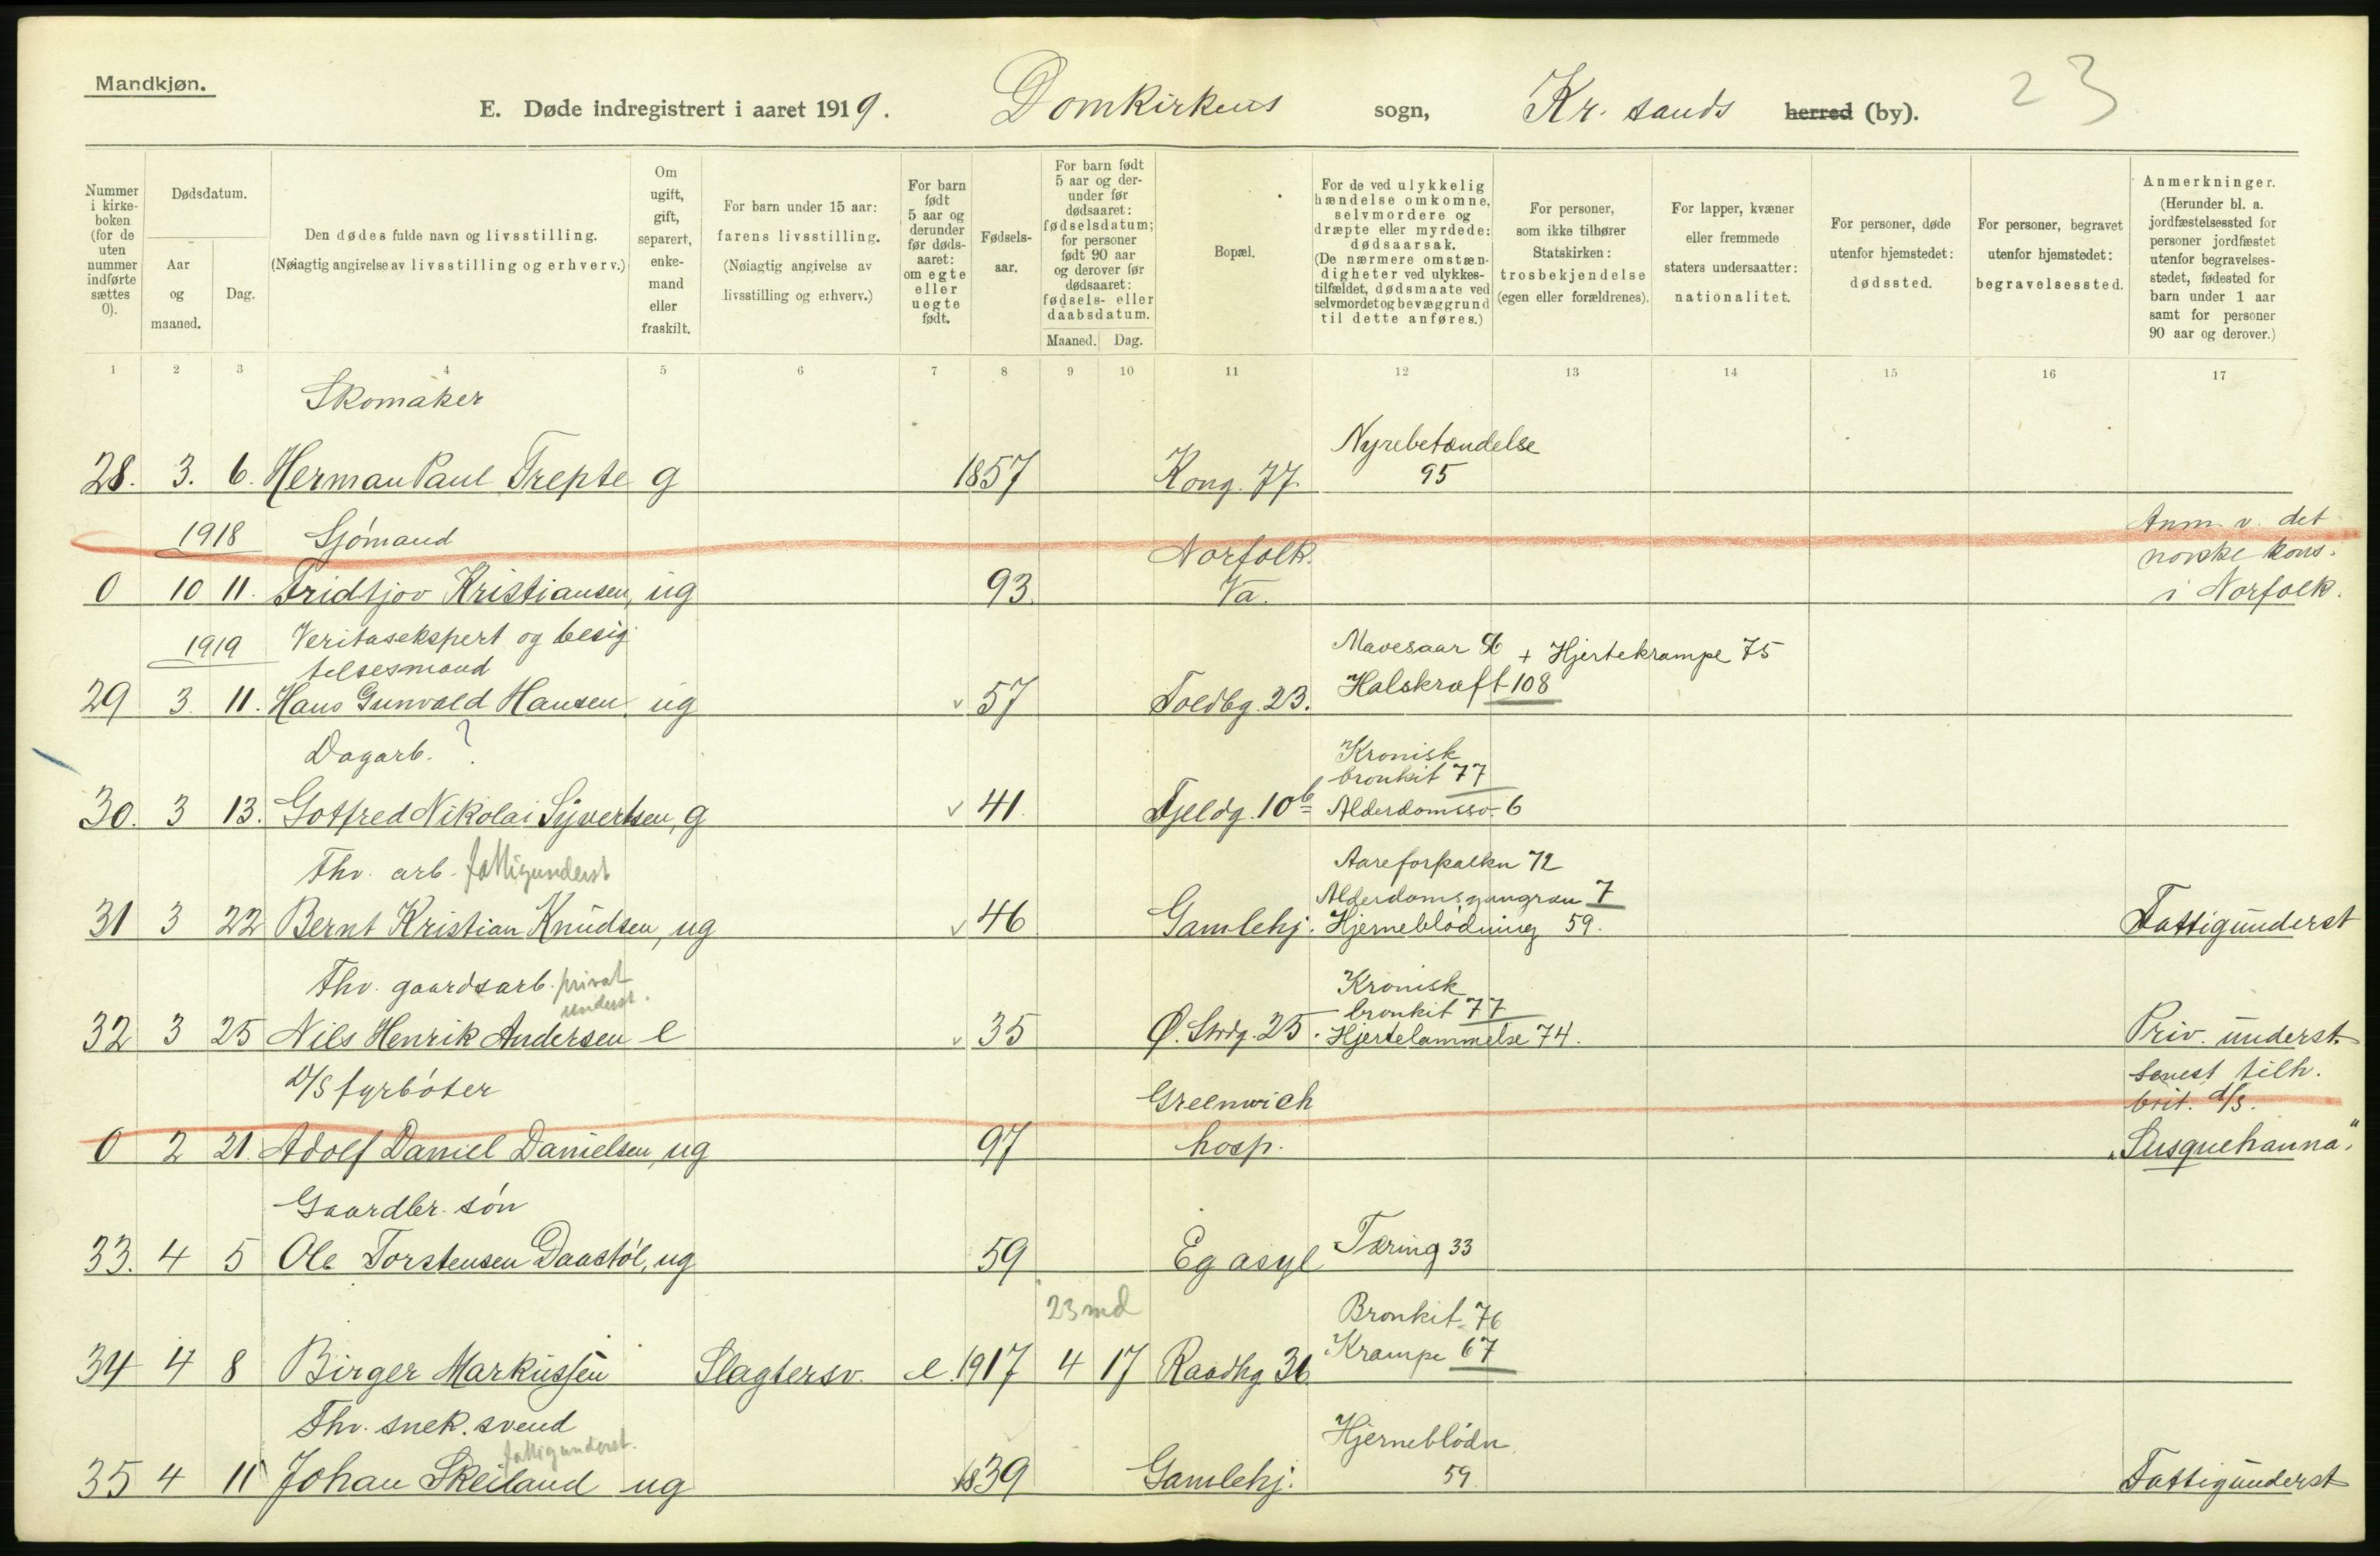 Mandkjøn.
E. Døde indregistrert i aaret 1919. Domkirkens sogn, Kr. sands herred (by). 23
Nummer i kirkeboken (for de uten nummer indførte sættes 0).
Dødsdatum.
Aar og maaned.
Dag.
Den dødes fulde navn og livsstilling.
(Nøiagtig angivelse av livsstilling og erhverv.)
Om ugift, gift, separert, enkemand eller fraskilt.
For barn under 15 aar: farens livsstilling.
(Nøiagtig angivelse av livsstilling og erhverv.)
For barn født 5 aar og derunder før dødsaaret: om egte eller uegte født.
Fødselsaar.
For barn født 5 aar og derunder før dødsaaret: fødselsdatum; for personer født 90 aar og derover før dødsaaret: fødsels- eller daabsdatum.
Maaned. Dag.
Bopæl.
For de ved ulykkelig hændelse omkomne, selvmordere og dræpte eller myrdede: dødsaarsak.
(De nærmere omstændigheter ved ulykkestilfældet, dødsmaate ved selvmordet og bevæggrund til dette anføres.)
For personer, som ikke tilhører Statskirken: trosbekjendelse (egen eller forældrenes).
For lapper, kvæner eller fremmede staters undersaatter: nationalitet.
For personer, døde utenfor hjemstedet: dødssted.
For personer, begravet utenfor hjemstedet: begravelsessted.
Anmerkninger.
(Herunder bl. a. jordfæstelsessted for personer jordfæstet utenfor begravelsesstedet, fødested for barn under 1 aar samt for personer 90 aar og derover.)
1 2 3 4 5 6 7 8 9 10 11 12 13 14 15 16 17
Skomaker
Nyrebetændelse
28. 3. 6. Herman Paul Trepte g 1857 Kong. 77 95
1918 Sjömand Norfolk. Anm. v. det
norske kons.
0 10 11. Fridtjov Kristiansen, ug 93. Va. i Norfolk.
1919 Veritasekspert og besig
telsesmand Mavesaar + Hjertekrampe 75
29 3. 11. Hans Gunvald Hansen. ug v 57 Toldbg. 23. Halskræft 108
Dagarb. ? Kronisk
bronkit 77
30. 3 13. Gotfred Nikolai Syvertsen, g v 41. Fjeldg. 10b Alderdomssv. 6
Fhv. arb. fattigunderst. Aareforkalkn 72
Alderdomsgangræn 7
31 3 22 Bernt Kristian Knudsen, ug v 46 Gamlehj. Hjerneblödning 59. Fattigunderst
Fhv. gaardsarb. privat Kronisk
underst. bronkit 77
32 3 25 Nils Henrik Andersen e v 35 Ø. Strdg. 25. Hjertelammelse 74. Priv. underst.
D/S fyrböter Greenwich senest tilh.
brit. d/s.
0 2 21. Adolf Daniel Danielsen, ug 97 hosp. „Susquehanna"
Gaardbr. sön
33. 4 5 Ole Torstensen Daastöl, ug 59 Eg asyl Tæring 33
23 md Bronkit 76
34 4 8 Birger Markussen Slagtersv. e. 1917 4 17 Raadhg 31. Krampe 67
Fhv. snek. svend Hjerneblödn.
fattigunderst.
35 4 11 Johan Skeiland ug 1839 Gamlehj. 59. Fattigunderst